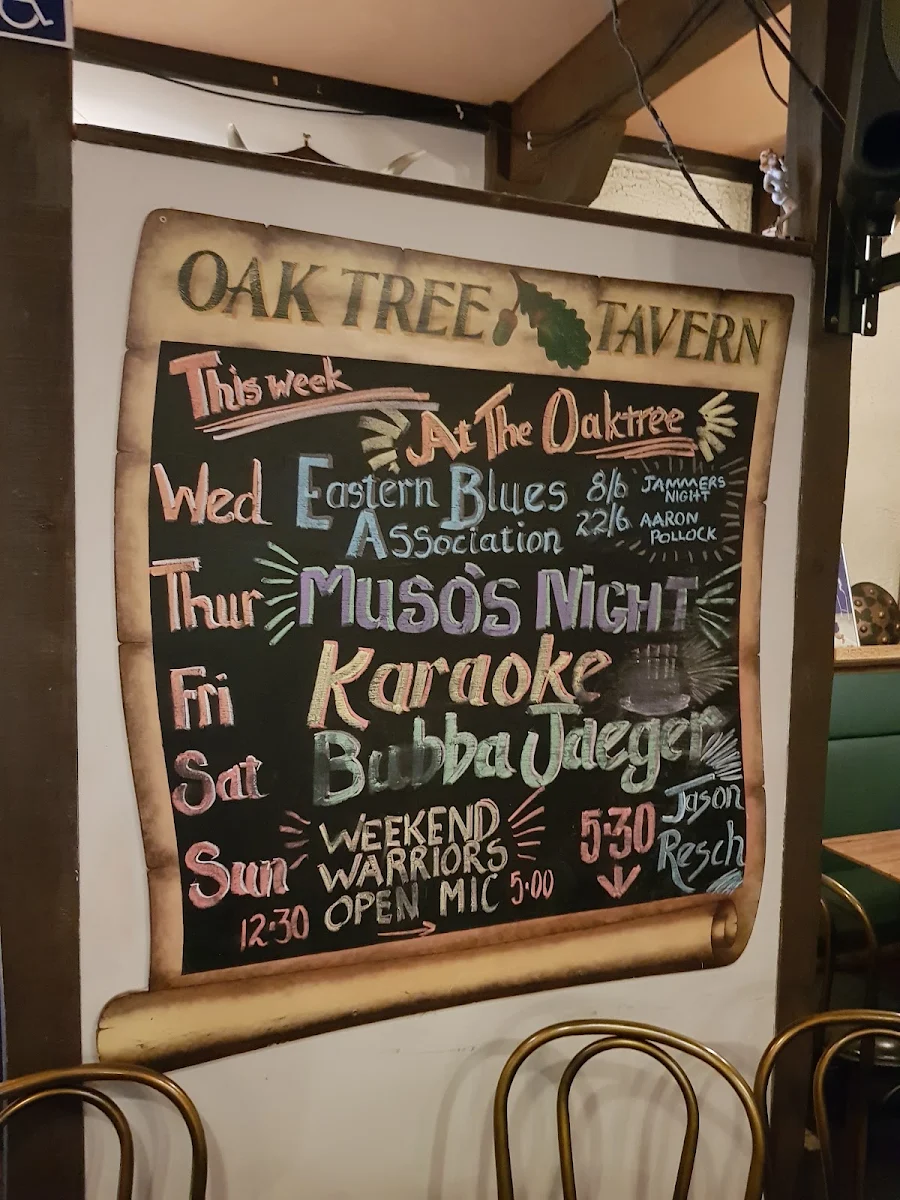 OAK TREE TAVERN
This week
At The Oaktree
Wed Eastern Blues Association 8/6 JAMMERS NIGHT
22/6 AARON POLLOCK
Thur MUSO'S NIGHT
Fri Karaoke
Sat Bubba Jaeger
Sun WEEKEND WARRIORS OPEN MIC
12:30 → 5:00
5:30 ↓ Jason Resch